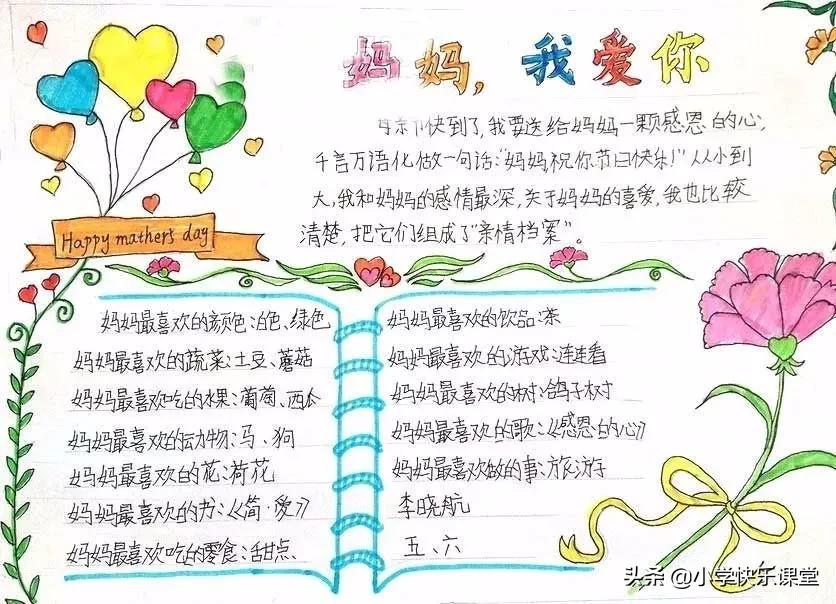 妈妈，我爱你
母亲节快到了，我要送给妈妈一颗感恩的心，
千言万语化做一句话：“妈妈，祝你节日快乐！”从小到
大，我和妈妈的感情最深，关于妈妈的喜爱，我也比较
清楚，把它们组成了“亲情档案”。
Happy mathers day
妈妈最喜欢的颜色：白色、绿色
妈妈最喜欢的蔬菜：土豆、蘑菇
妈妈最喜欢吃的水果：葡萄、西
妈妈最喜欢的动物：马、狗
妈妈最喜欢的花：荷花
妈妈最喜欢的书：《简·爱》
妈妈最喜欢吃的零食：甜点
妈妈最喜欢的饮品：茶
妈妈最喜欢的游戏：连连看
妈妈最喜欢的树：鸽子树
妈妈最喜欢的歌：《感恩的心》
妈妈最喜欢做的事：旅游
李晓航
五、六
头条 @小学快乐课堂